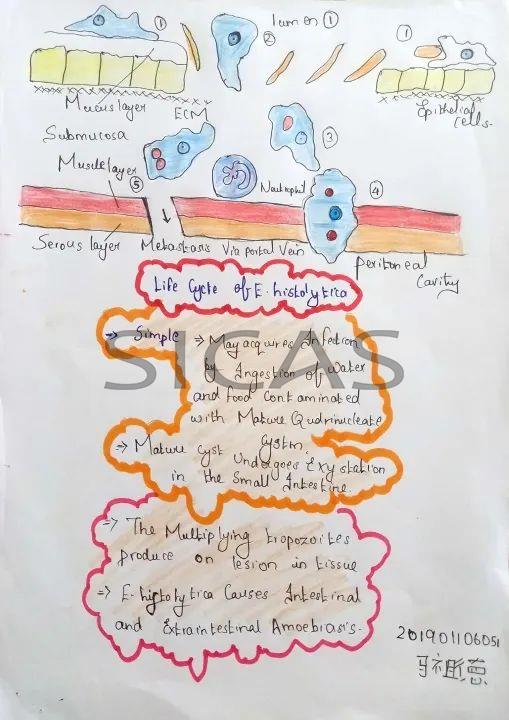 lumen ①
①
②
1
Mucus layer
ECM
Epithelial
cells-
Submucosa
③
Muscle layer
⑤
Neutrophil
④
Serous layer
Metastasis Via portal Vein
Peritoneal
Cavity
Life Cycle of E. histolytica
⇒ Simple ⇒ May acquires Infection
by Ingestion of water
and food contaminated
with Mature Qudrinucleate
Cystm.
⇒ Mature cyst Undergoes Exystation
in the Small Intestine
SICAS
⇒ The Multiplying tropozoites
produce on lesion in tissue
⇒ E. histolytica Causes Intestinal
and Extraintestinal Amoebiasis.
201901106051